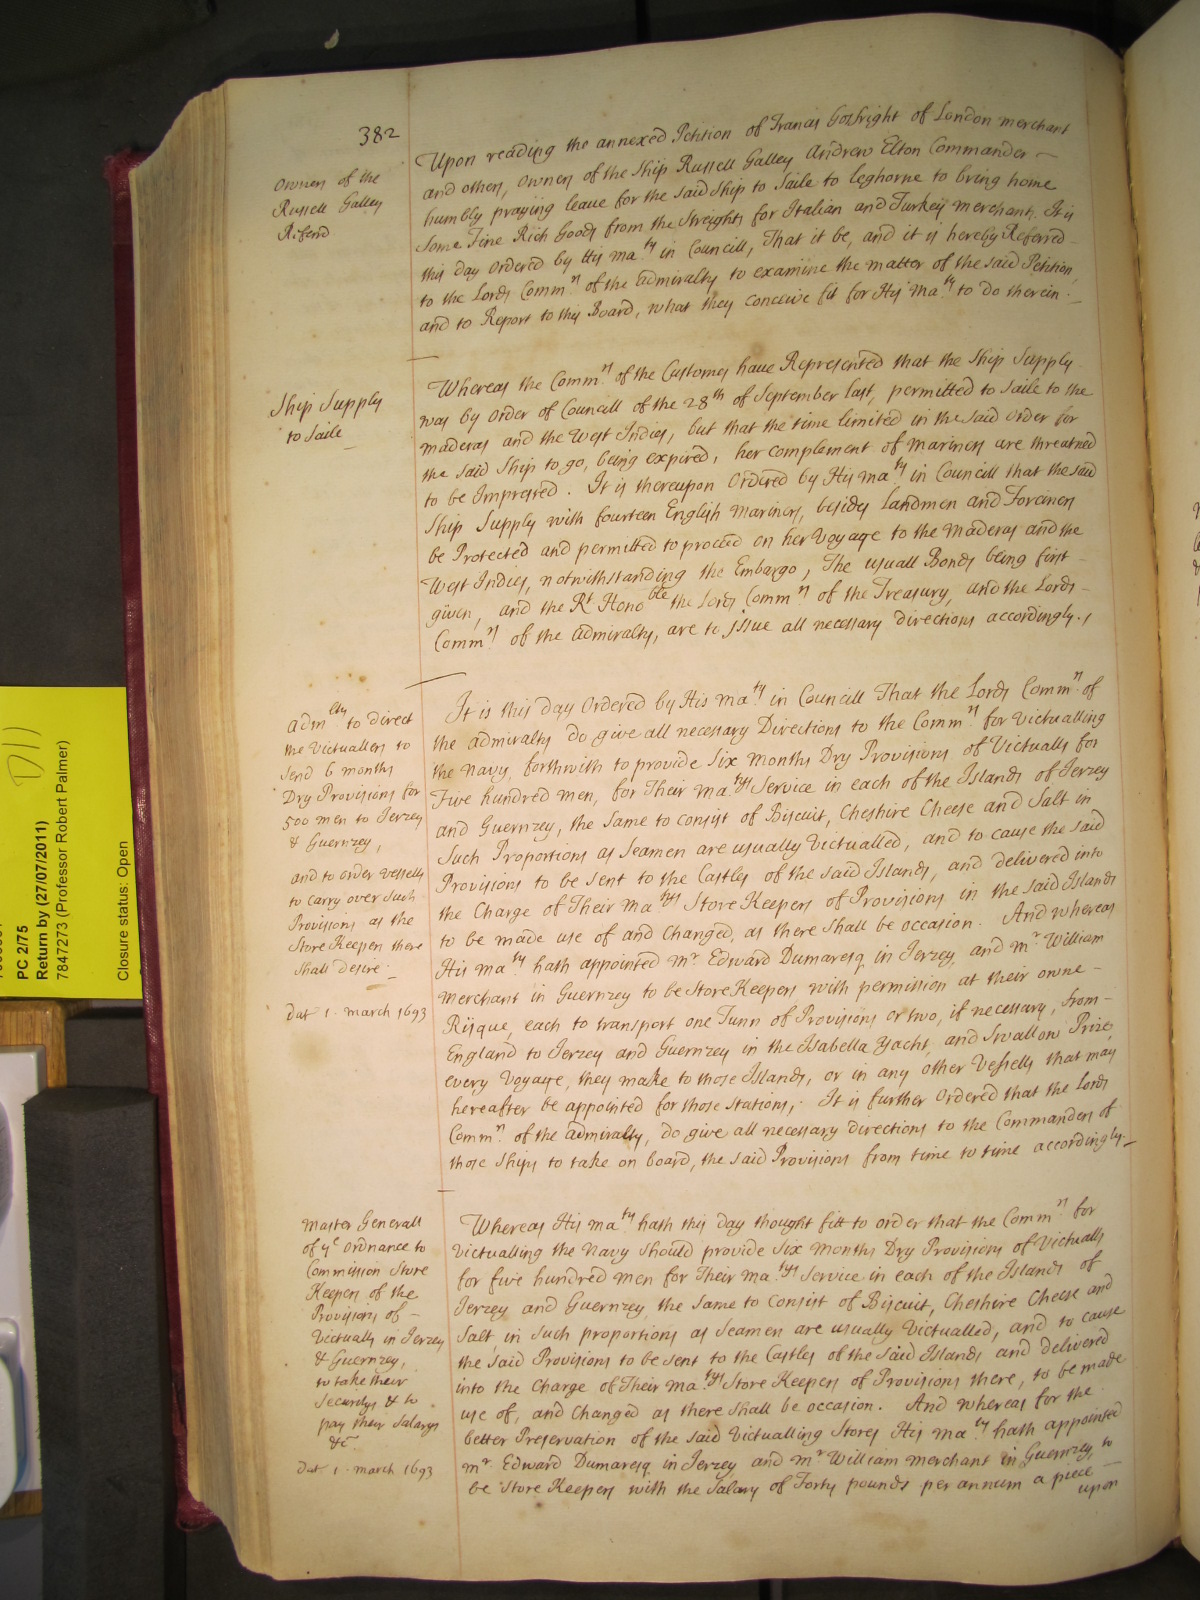 382
Owners of the
Russell Galley
Refer'd
Upon reading the annexed Petition of Francis Gosfright of London merchant
and others, Owners of the Ship Russell Galley Andrew Elton Commander
humbly praying leave for the said Ship to Saile to Leghorne to bring home
some Fine Rich Goods from the Streights for Italian and Turkey merchants. It is
this day Ordered by His Ma.ty in Councill, That it be, and it is hereby Referred
to the Lords Comm.rs of the Admiralty to examine the matter of the said Petition,
and to Report to this Board, what they conceive fit for His Ma.ty to do therein.
Ship Supply
to Saile
Whereas the Comm.rs of the Customes have Represented that the Ship Supply
was by Order of Councill of the 28th of September last, permitted to Saile to the
Maderas and the West Indies, but that the time limited in the said Order for
the said Ship to go, being expired, her complement of Mariners are threatned
to be Impressed. It is thereupon Ordered by His Ma.ty in Councill that the said
Ship Supply with fourteen English Mariners, besides Landmen and Foreiners
be Protected and permitted to proceed on her Voyage to the Maderas and the
West Indies, notwithstanding the Embargo, The usuall Bonds being first
given, and the Rt Honoble the Lords Comm.rs of the Treasury, and the Lords
Comm.rs of the Admiralty, are to issue all necessary directions accordingly.
Adm.lty to direct
the Victuallers to
send 6 months
Dry Provisions for
500 men to Jerzey
& Guernzey,
and to order vessells
to carry over such
Provisions as the
Store Keepers there
shall desire.
Dat 1. march 1693
It is this day Ordered by His Ma.ty in Councill That the Lords Comm.rs of
the Admiralty do give all necessary Directions to the Comm.rs for Victualling
the Navy, forthwith to provide Six months Dry Provisions of Victualls for
Five hundred men, for Their Ma.tys Service in each of the Islands of Jerzey
and Guernzey, the same to consist of Biscuit, Cheshire Cheese and Salt in
such Proportions as Seamen are usually Victualled, and to cause the said
Provisions to be sent to the Castles of the said Islands, and delivered into
the Charge of Their Ma.tys Store Keepers of Provisions in the said Islands
to be made use of and Changed, as there shall be occasion. And whereas
His Ma.ty hath appointed Mr Edward Dumaresq in Jerzey, and Mr William
Merchant in Guernzey to be Store Keepers with permission at their owne
Risque, each to transport one Tunn of Provisions or two, if necessary, from
England to Jerzey and Guernzey in the Isabella Yacht, and Swallow Prize,
every Voyage, they make to those Islands, or in any other Vessells that may
hereafter be appointed for those Stations, It is further Ordered that the Lords
Comm.rs of the Admiralty, do give all necessary directions to the Commanders of
those Ships to take on board, the said Provisions from time to time accordingly.
Master Generall
of ye Ordnance to
Commission Store
Keepers of the
Provisions of
Victualls in Jerzey
& Guernzey,
to take their
Securitys & to
pay their Salarys
&c
Dat 1. march 1693
Whereas His Ma.ty hath this day thought fitt to order that the Comm.rs for
Victualling the Navy should provide Six months Dry Provisions of Victualls
for five hundred men for Their Ma.tys Service in each of the Islands of
Jerzey and Guernzey the same to consist of Biscuit, Cheshire Cheese and
Salt, in such proportions as Seamen are usually Victualled, and to cause
the said Provisions to be sent to the Castles of the said Islands and delivered
into the Charge of Their Ma.tys Store Keepers of Provisions there, to be made
use of, and Changed as there shall be occasion. And whereas for the
better Preservation of the said Victualling Stores His Ma.ty hath appointed
Mr Edward Dumaresq in Jerzey and Mr William Merchant in Guernzey, to
be Store Keepers with the Salary of Forty pounds per annum a piece
upon
PC 2/75
Return by (27/07/2011)
7847273 (Professor Robert Palmer)
Closure status: Open